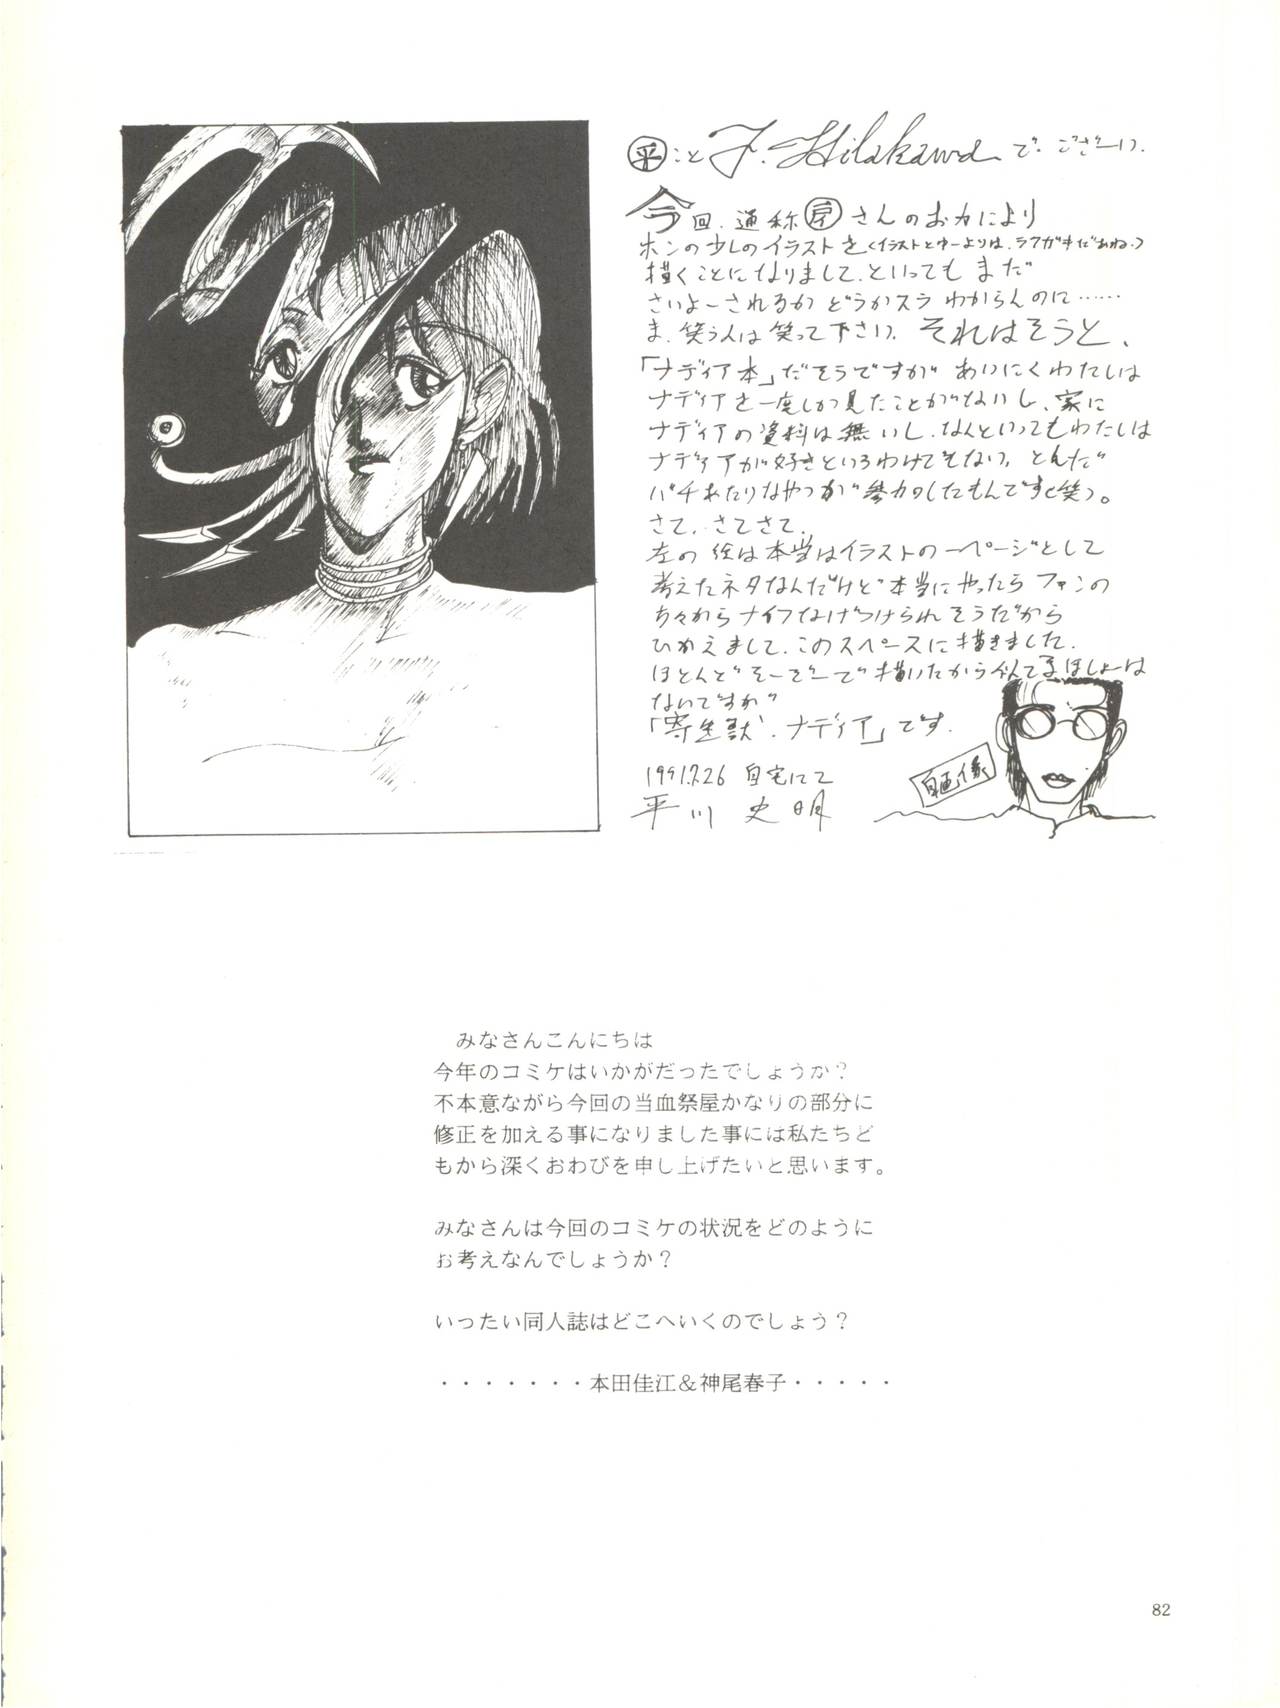 ㊥こと F. Hilakawa で ござーい.
今回、通称 さんのお力により
ホンの少しのイラストを(イラストとゆーよりは、ラクガキだあね.)
描くことになりまして、といっても まだ
さいよーされるか どうかスラ わからんのに……
ま、笑う人は笑って下さい。それはそうと、
「ナディア本」だそうですが あいにくわたしは
ナディアを一度しか見たことがないし、家に
ナディアの資料は無いし、なんといってもわたしは
ナディアが好きというわけでもない。とんだ
バチあたりなやつが参加したもんです(笑)。
さて、さてさて、
左の絵は本当はイラストの一ページとして
考えたネタなんだけど本当にやったら ファンの
方々からナイフなげつけられそうだから
ひかえまして、このスペースに描きました.
ほとんど そーぞーで描いたから似てるほしょーは
ないですが
「寄生獣・ナディア」です.
1991.7.26 自宅にて
平川 史明
自画像
みなさんこんにちは
今年のコミケはいかがだったでしょうか？
不本意ながら今回の当血祭屋かなりの部分に
修正を加える事になりました事には私たちど
もから深くおわびを申し上げたいと思います。
みなさんは今回のコミケの状況をどのように
お考えなんでしょうか？
いったい同人誌はどこへいくのでしょう？
・・・・・・・本田佳江＆神尾春子・・・・・
82